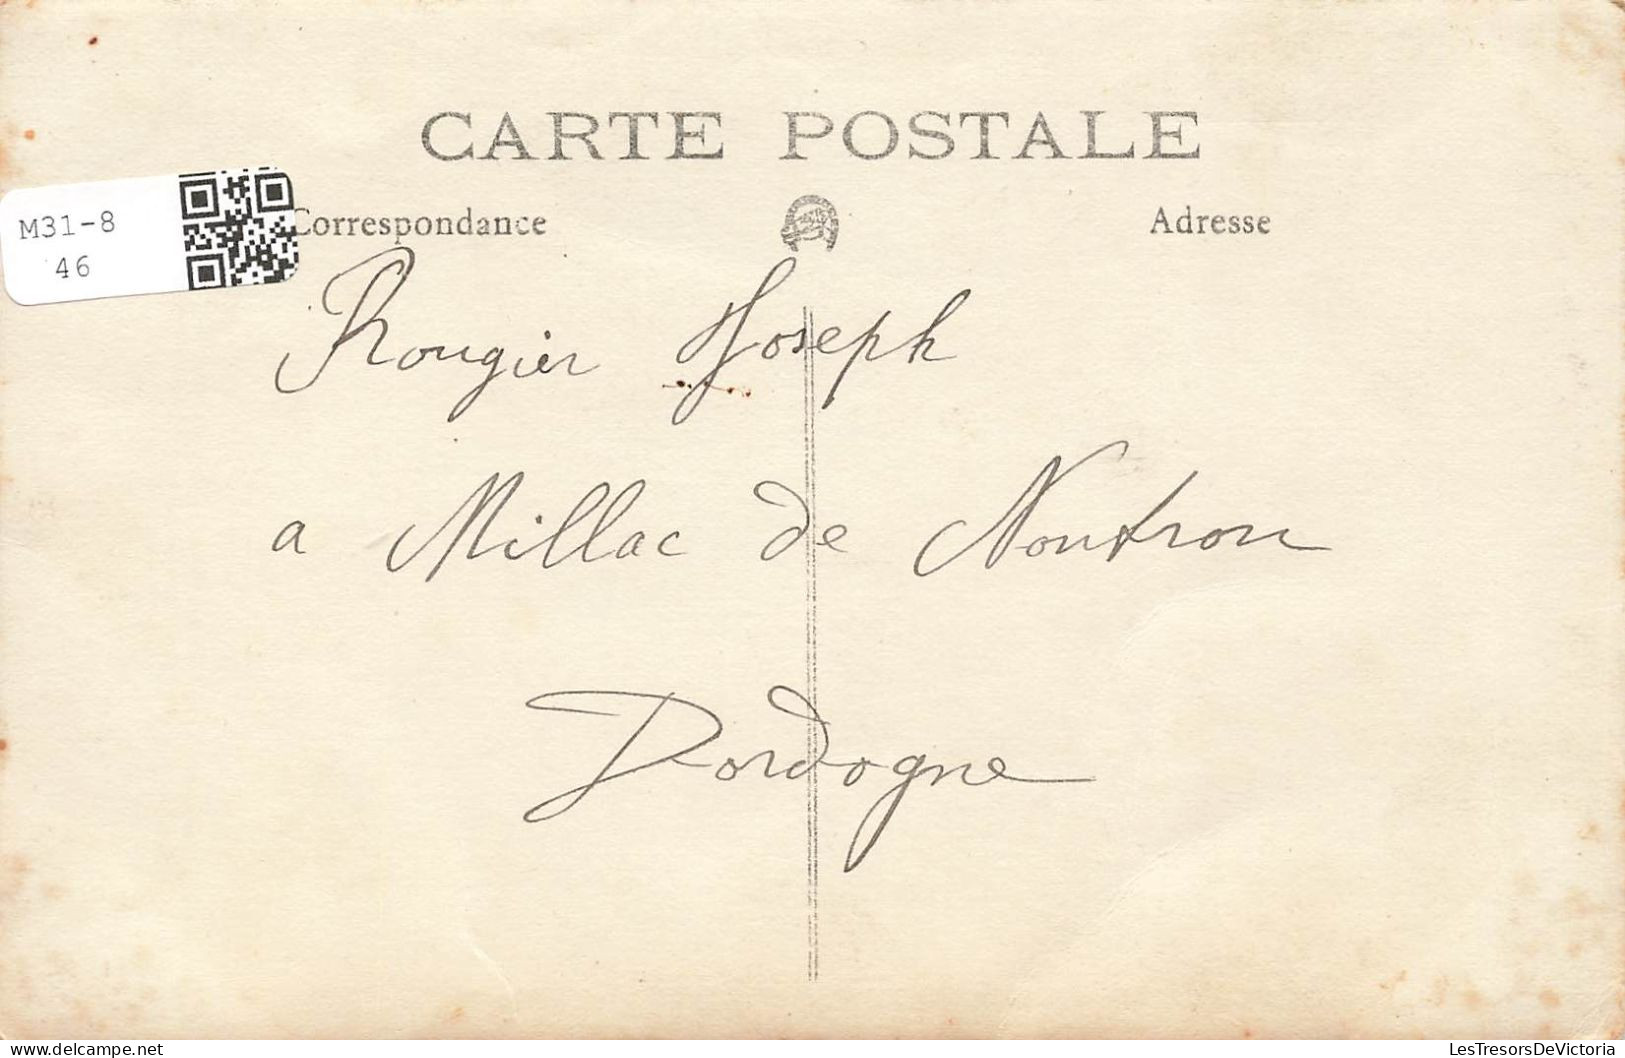 CARTE POSTALE
M31-8
46
Correspondance
Adresse
Rougier Joseph
a Millac de Nontron
Dordogne
LesTresorsDeVictoria